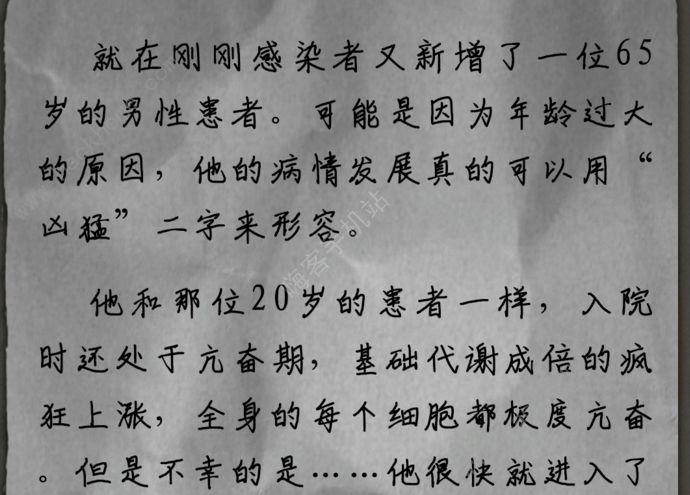 就在刚刚感染者又新增了一位65
岁的男性患者。可能是因为年龄过大
的原因，他的病情发展真的可以用“
凶猛”二字来形容。
他和那位20岁的患者一样，入院
时还处于亢奋期，基础代谢成倍的疯
狂上涨，全身的每个细胞都极度亢奋
。但是不幸的是……他很快就进入了